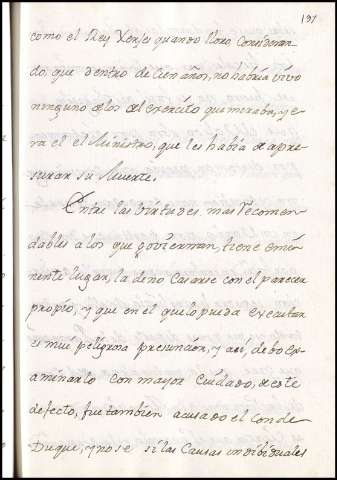 191
como el Rey Xerjes quando lloro Consideran-
do, que dentro de Cien años, no habria vivo
ninguno de los del exército que miraba, y e-
ra el el Ministro, que les habia de apre-
surar su Muerte.
Entre las virtudes mas recomen-
dables a los que goviernan, tiene emi-
nente lugar, la de no Casarse con el parecer
propio, y que en el que lo pueda executar
es mui peligrosa presuncion, y asi, debo ex-
aminarlo con mayor Cuidado, de este
defecto, fue tambien acusado el Conde
Duque, y no se si las Causas indibiduales